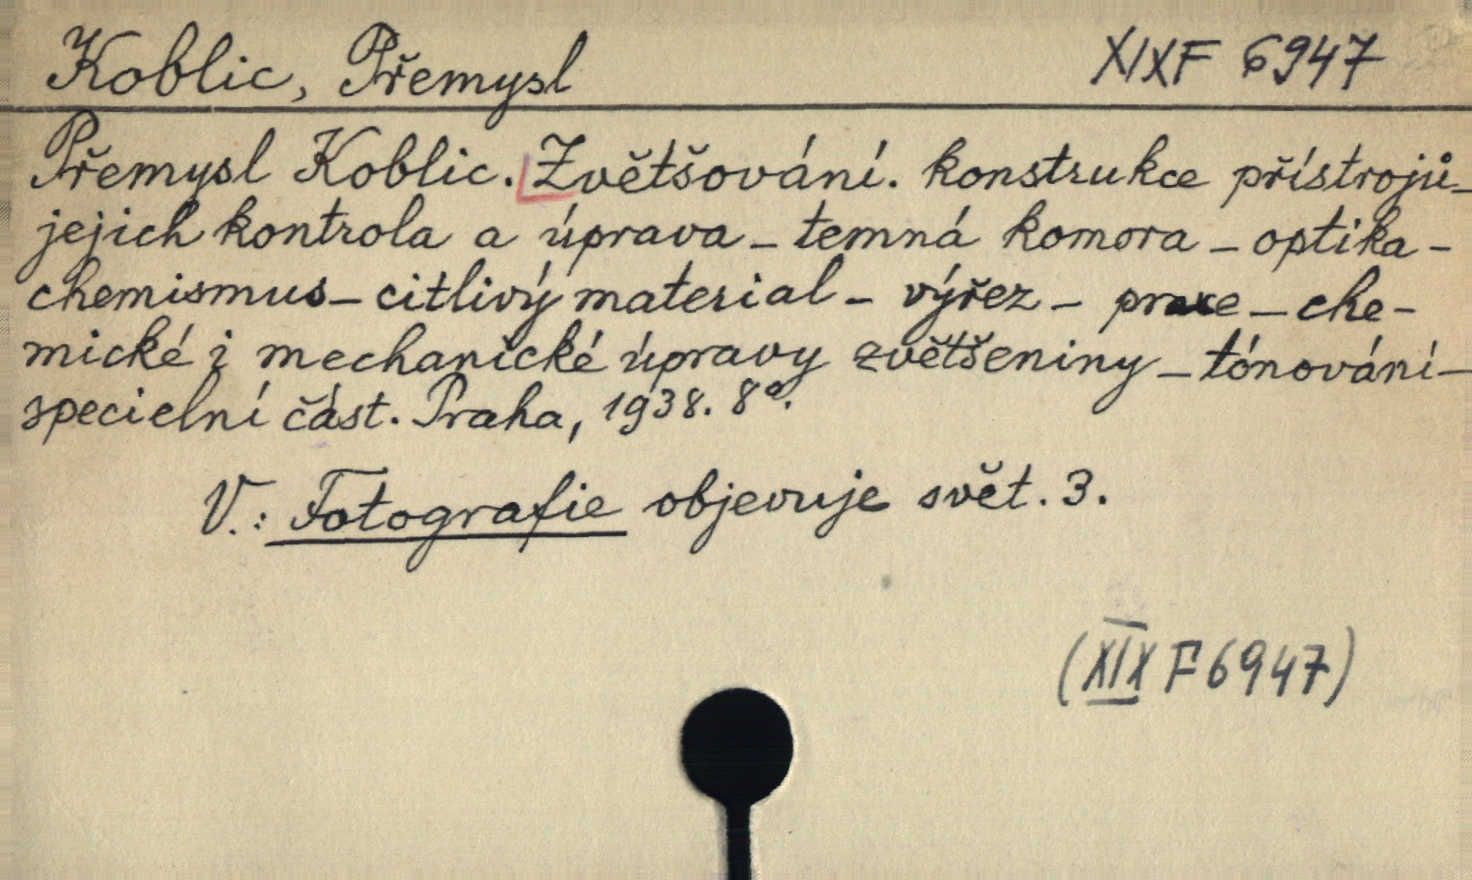 Koblic, Přemysl XIXF 6947
Přemysl Koblic. Zvětšování. konstrukce přístrojů-
jejich kontrola a úprava - temná komora - optika -
chemismus - citlivý material - výřez - praxe - che-
mické i mechanické úpravy zvětšeniny - tónování -
specielní část. Praha, 1938. 8°.
V.: Fotografie objevuje svět. 3.
(XIX F 6947)